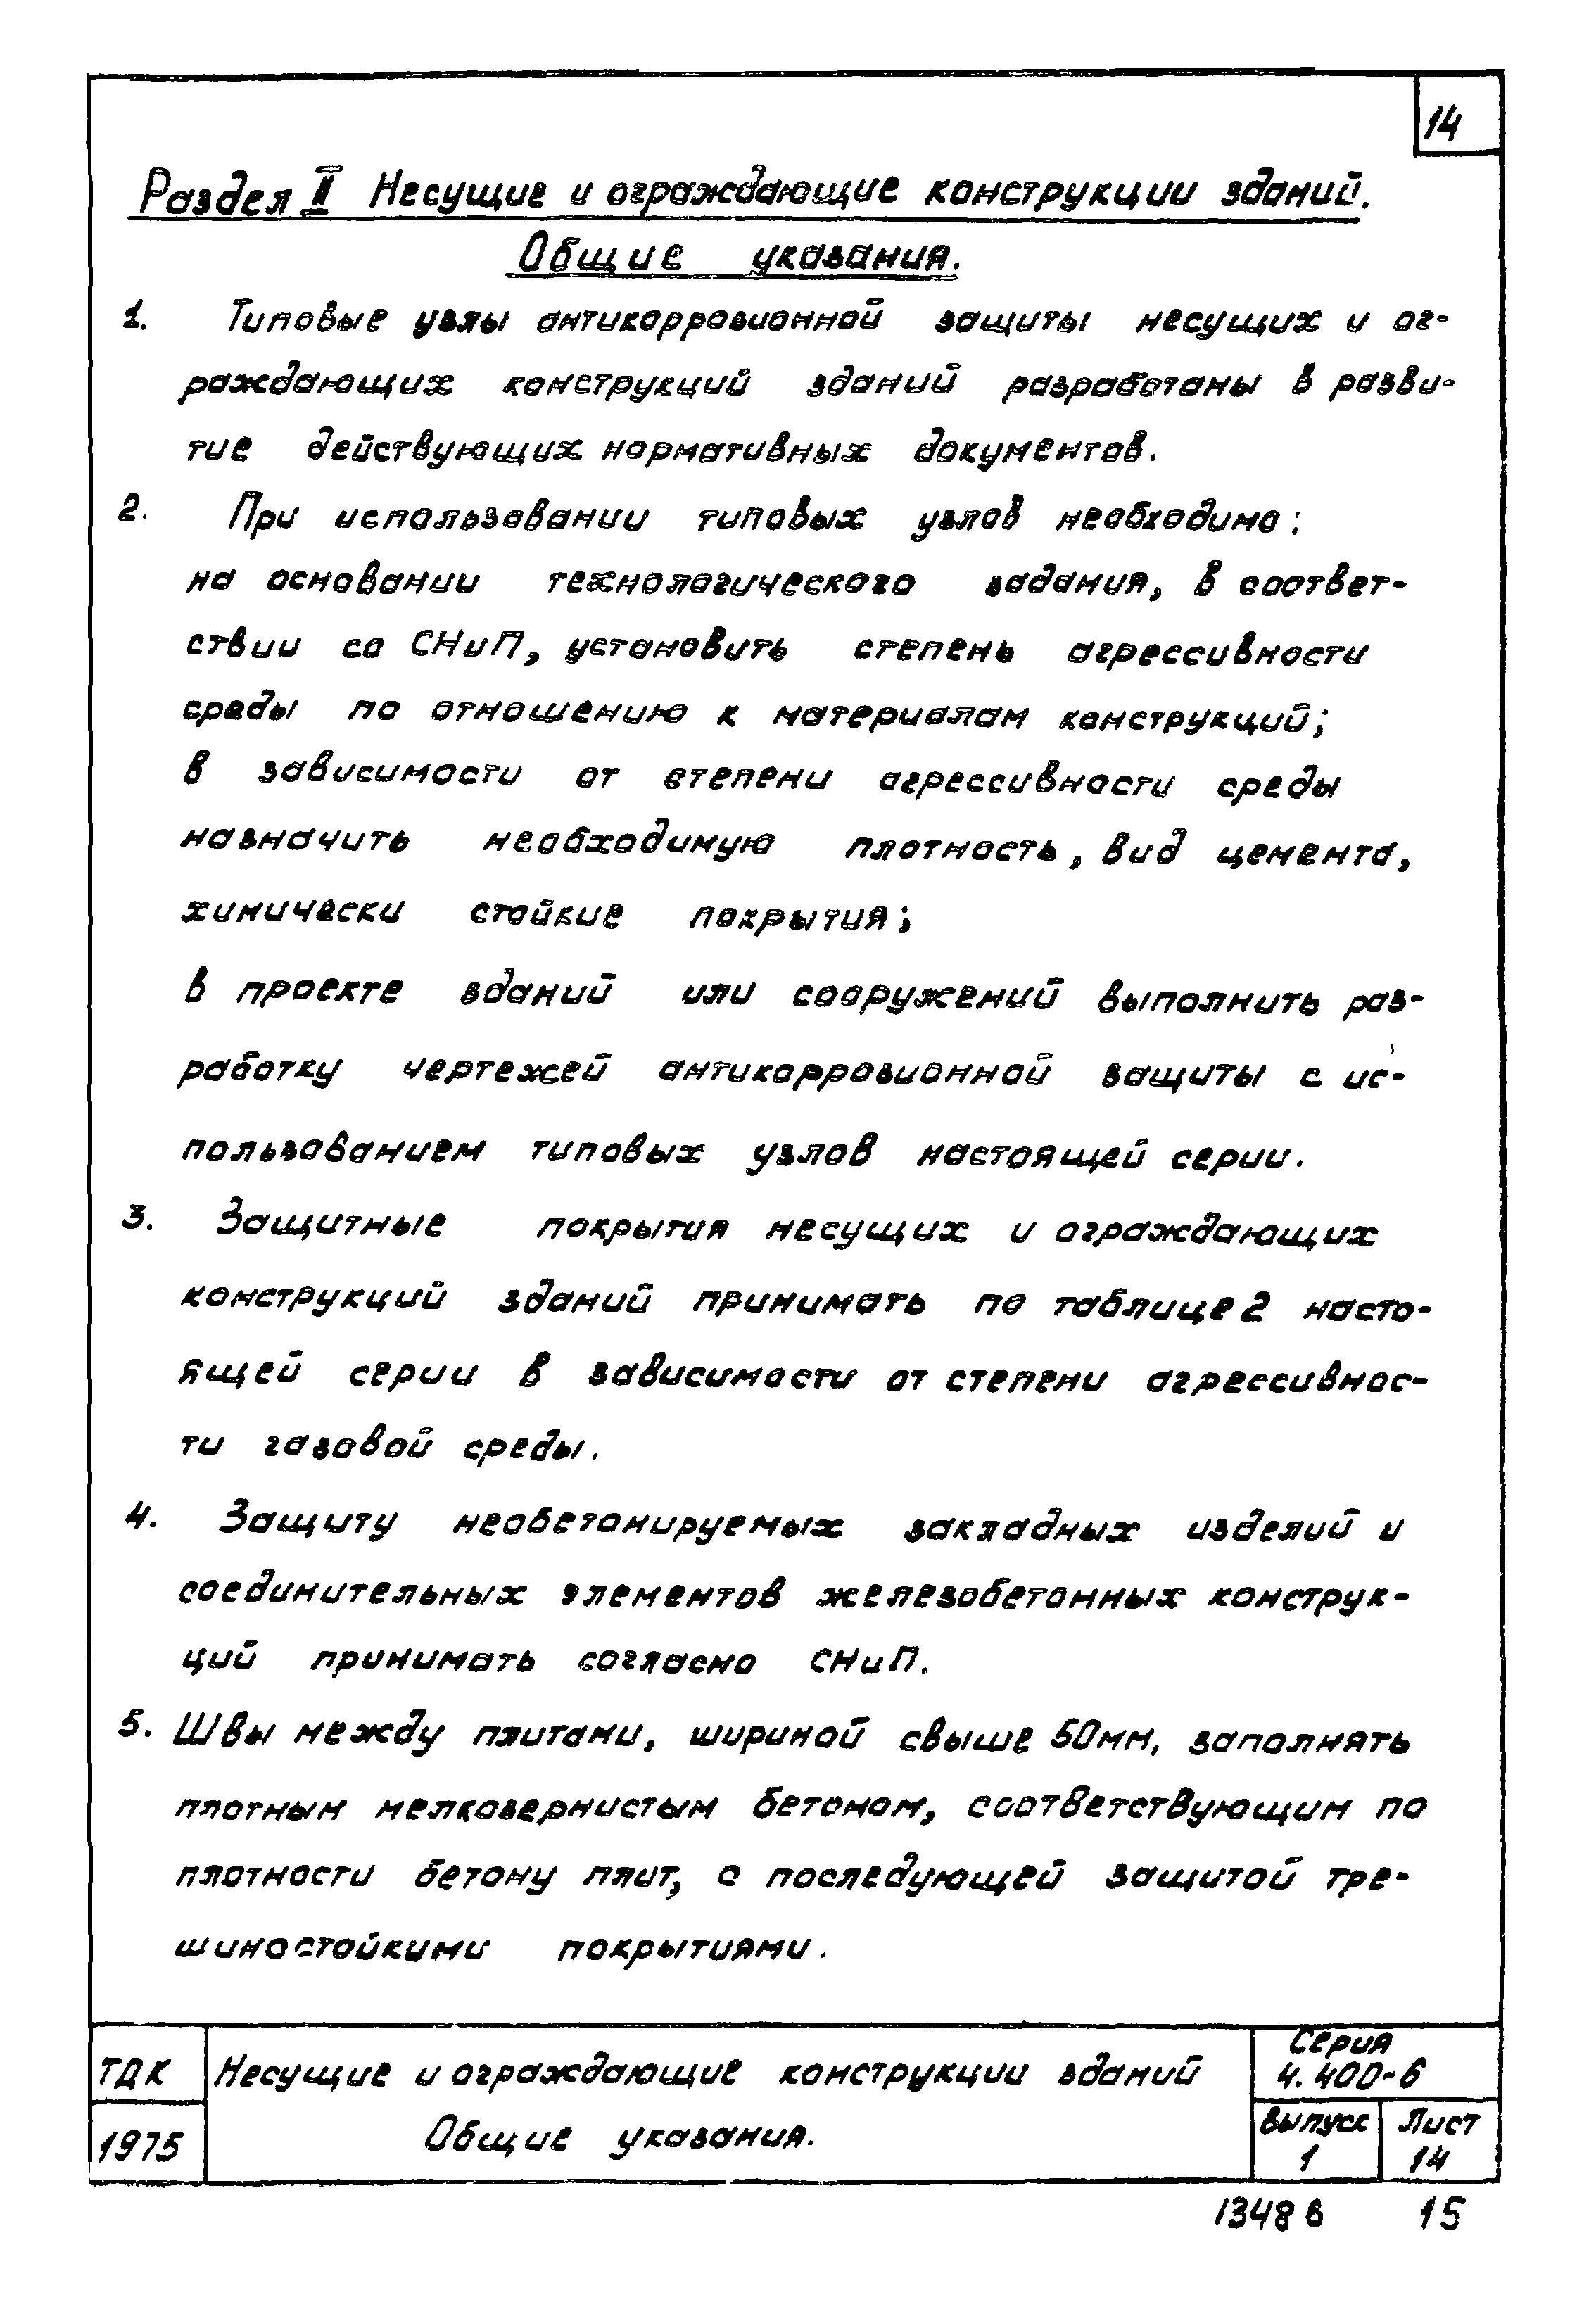 14
Раздел II Несущие и ограждающие конструкции зданий.
Общие указания.
1. Типовые узлы антикоррозионной защиты несущих и ог-
раждающих конструкций зданий разработаны в разви-
тие действующих нормативных документов.
2. При использовании типовых узлов необходимо:
на основании технологического задания, в соответ-
ствии со СНиП, установить степень агрессивности
среды по отношению к материалам конструкций;
в зависимости от степени агрессивности среды
назначить необходимую плотность, вид цемента,
химически стойкие покрытия;
в проекте зданий или сооружений выполнить раз-
работку чертежей антикоррозионной защиты с ис-
пользованием типовых узлов настоящей серии.
3. Защитные покрытия несущих и ограждающих
конструкций зданий принимать по таблице 2 насто-
ящей серии в зависимости от степени агрессивнос-
ти газовой среды.
4. Защиту необетонируемых закладных изделий и
соединительных элементов железобетонных конструк-
ций принимать согласно СНиП.
5. Швы между плитами, шириной свыше 50мм, заполнять
плотным мелкозернистым бетоном, соответствующим по
плотности бетону плит, с последующей защитой тре-
шиностойкими покрытиями.
ТДК Несущие и ограждающие конструкции зданий Серия 4.400-6
1975 Общие указания. Выпуск 1 Лист 14
13488 15